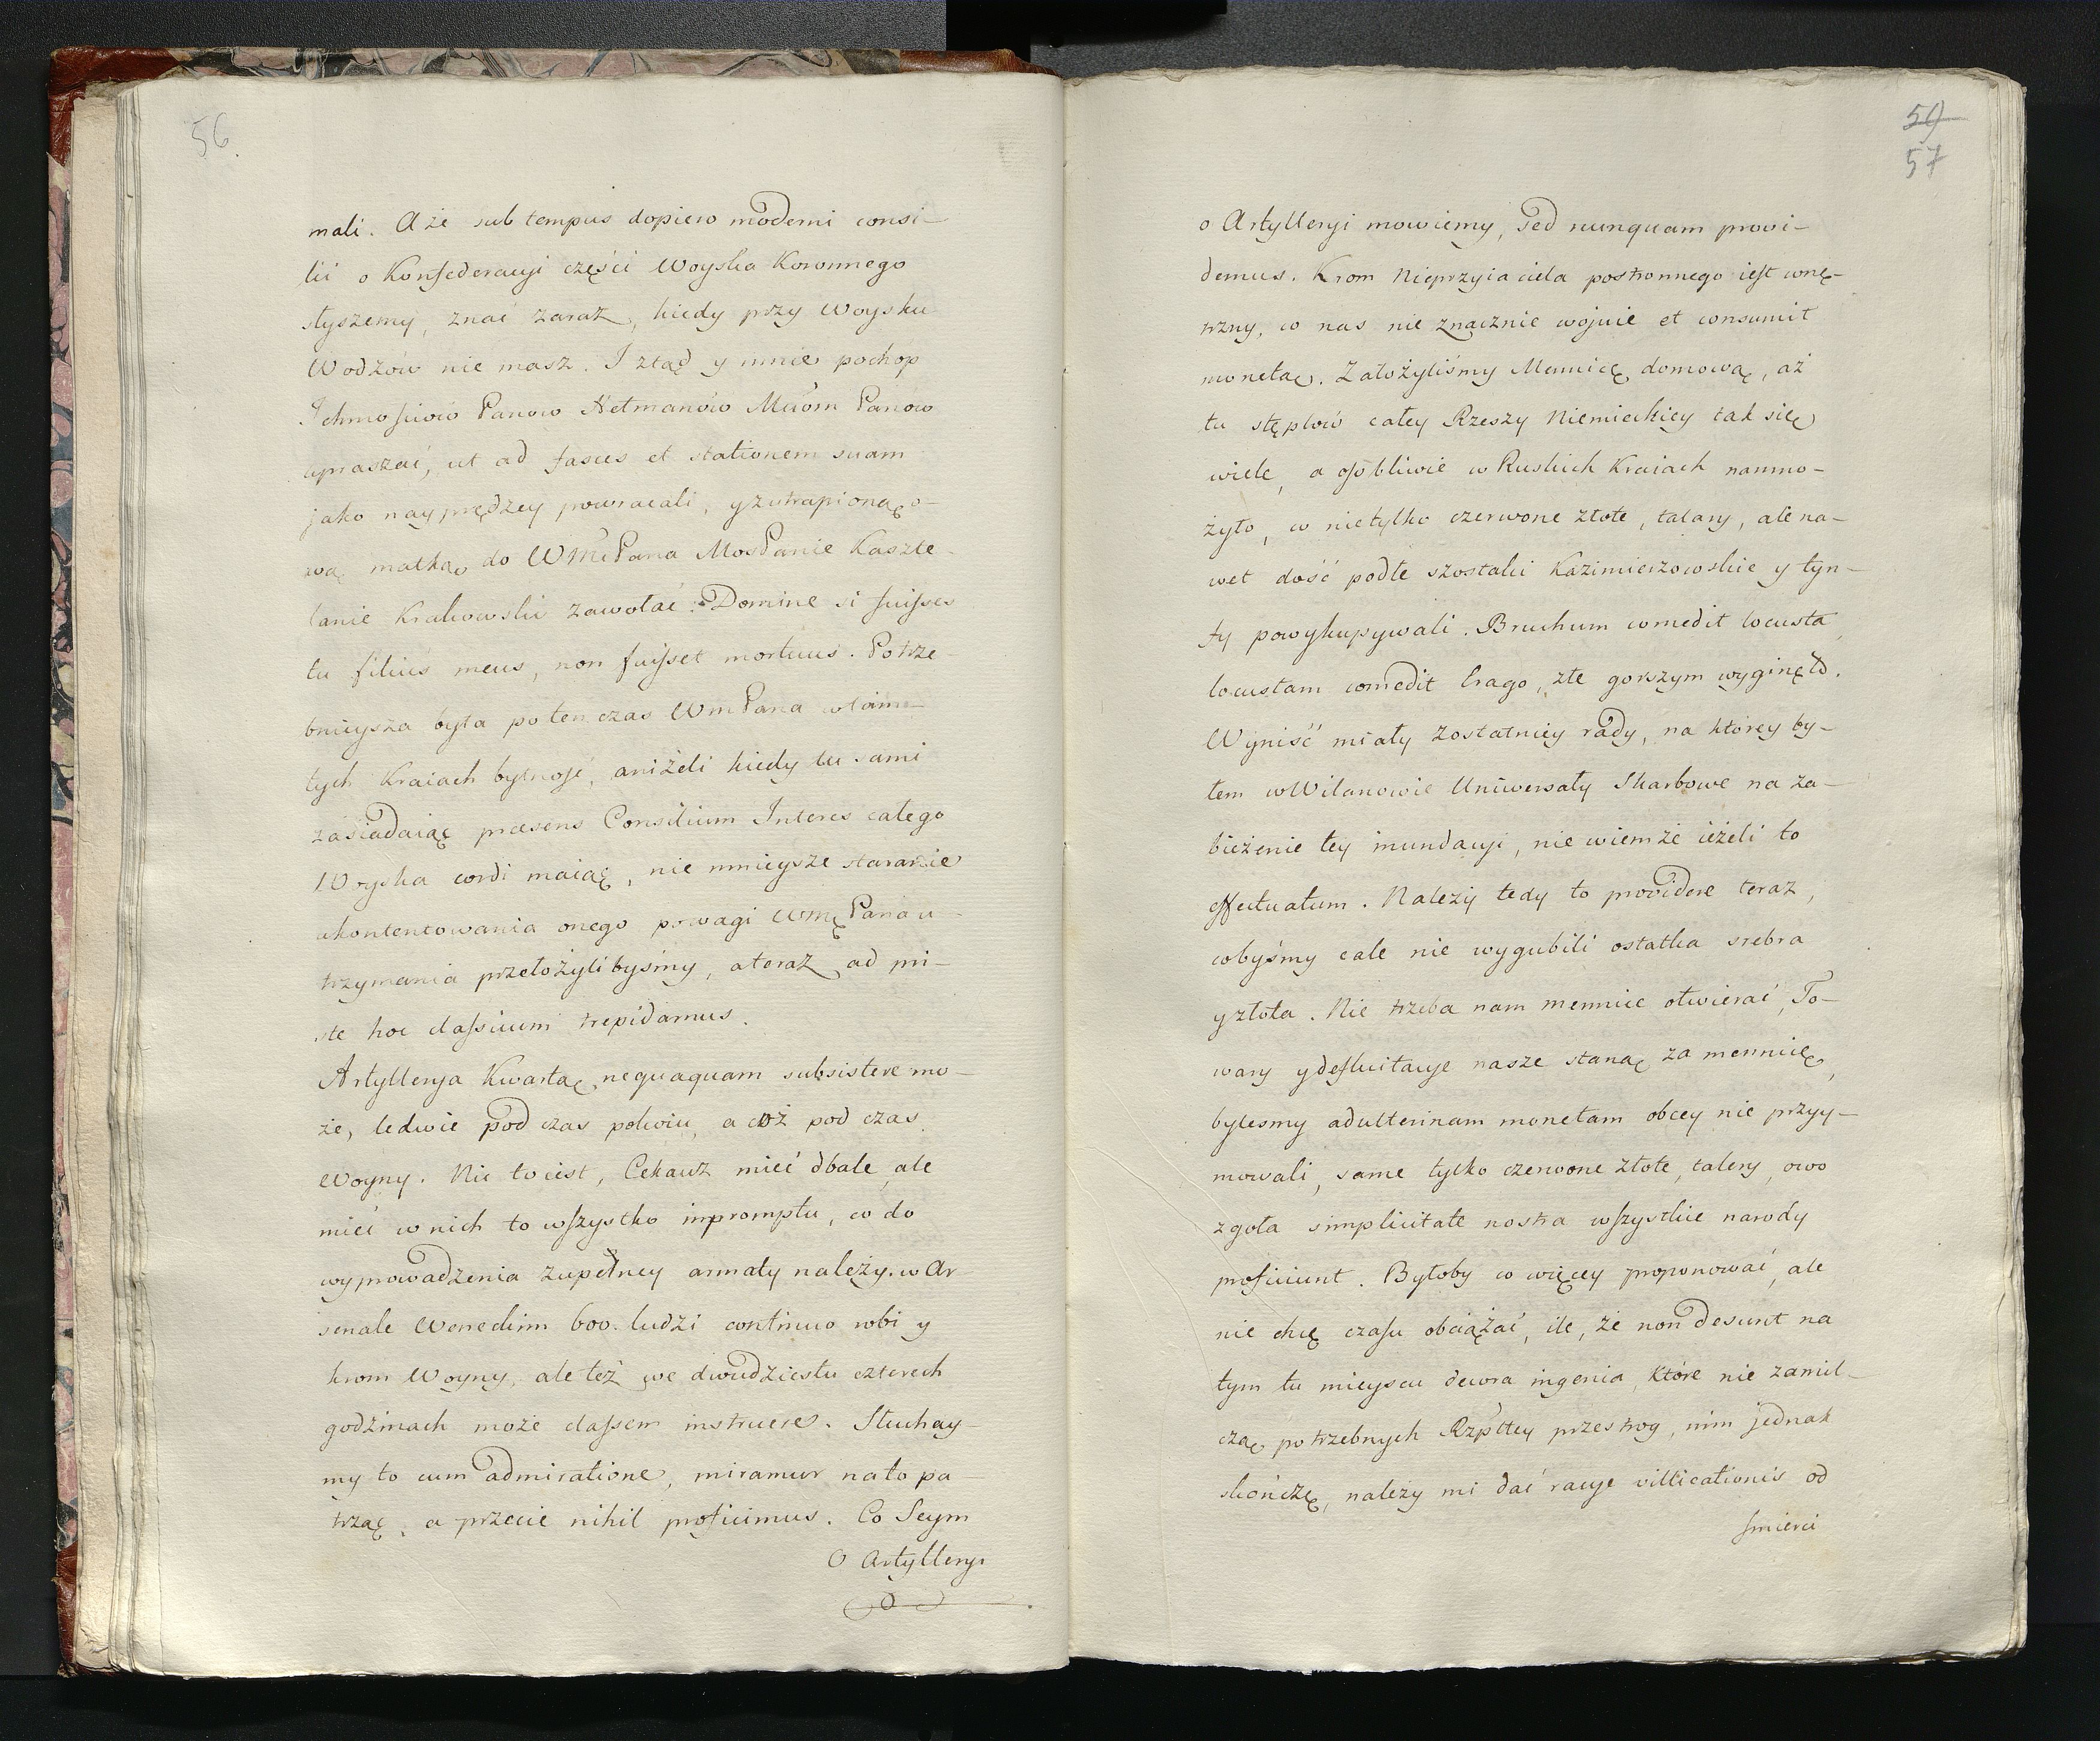 56.
mali. A że sub tempus dopiero moderni consi-
lii o Konfederacyi części Woyska Koronnego
słyszemy, znać zaraz, kiedy przy Woysku
Wodzów nie masz. I ztąd y mnie pochop
Ichmościów Panow Hetmanów Mciom Panow
upraszać, ut ad fasces et stationem suam
jako nayprędzey powracali, y z utrapioną o-
wą matką do WMċ Pana MosPanie Kaszte-
lanie Krakowski zawołać: Domine si fuisses
tu filius meus, non fuisset mortuus. Potrze-
bnieysza była po ten czas WmPana w tam-
tych Kraiach bytność, aniżeli kiedy tu sami
zasiadaiąc praesens Consilium Interes całego
Woyska cordi maiąc, nie mnieysze staranie
ukontentowania onego powagi WMċ Pana u-
trzymania przełożylibyśmy, a teraz ad tri-
ste hoc classicum trepidamus.
Artyllerya Kwartą nequaquam subsistere mo-
że, ledwie pod czas pokoiu, a coż pod czas
Woyny. Nic to iest, Cekauz mieć dbale, ale
mieć w nich to wszystko inpromptu, co do
wyprowadzenia zupełney armaty należy. w Ar-
senale Weneckim 600. ludzi continuo robi y
krom Woyny, ale też we dwudziestu czterech
godzinach może classem instruere. Słuchay-
my to cum admiratione, miramur na to pa-
trząc, a przecie nihil proficimus. Co Seym
O Artylleryi
59
57
o Artylleryi mowiemy, sed nunquam provi-
demus. Krom Nieprzyiaciela postronnego iest wnę-
trzny, co nas nie znacznie wojuie et consumit
monetą. Założyliśmy Mennicę domową, aż
tu stęplow całey Rzeszy Niemieckiey tak się
wiele, a osobliwie w Ruskich Kraiach namno-
żyło, co nie tylko czerwone złote, talary, ale na-
wet dość podłe szostaki Kazimierzowskie y tyn-
fy powykupywali. Bruchum comedit locusta,
locustam comedit Erago, złe gorszym wyginęło.
Wyniść miały z ostatniey rady, na którey by-
łem w Wilanowie Uniwersały Skarbowe na za-
bieżenie tey inundacyi, nie wiem że ieżeli to
effectuatum. Należy tedy to providere teraz,
cobyśmy cale nie wygubili ostatka srebra
y złota. Nie trzeba nam mennic otwierać, To-
wary y defluitacye nasze staną za mennicę,
bylesmy adulterinam monetam obcey nie przyy-
mowali, same tylko czerwone złote, talery, owo
zgoła simplicitate nostra wszystkie narody
proficiunt. Byłoby co więcey proponować, ale
nie chcę czasu obciążać, ile, że non desunt na
tym tu mieyscu decora ingenia, które nie zamil-
czą potrzebnych Rzpttey przestrog, nim jednak
skończę, należy mi dać racye villicationis od
śmierci